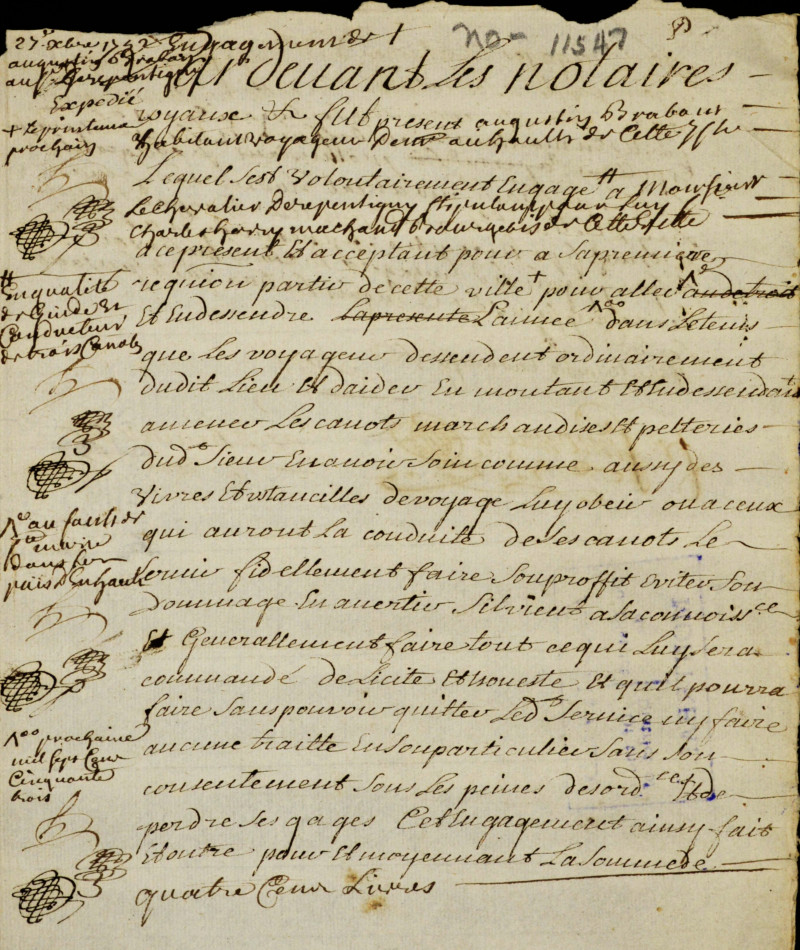 no- 11547
27e xbre 1752 Engagement de
augustin Brabant
au Sr. Derepentigny
Expedié
Par devant Les notaires
royaux &c fut present augustin Brabant
habitant voyageur dem.t au haut de Cette Isle
Lequel s'est volontairement Engagé tt a Monsieur
Le chevalier Derepentigny stipulant pour Luy
Charles hery marchand Bourgeois de Cette ville
a ce present Et acceptant pour a sa premiere
requi^on partir de cette ville + pour aller 1o au detroit
Et En dessendre La presente L'année 1oo dans Le tems
que Les voyageur dessendent ordinairement
dudit Lieu Et d'aider En montant Et En dessendant
a mener Les canots marchandises Et pelteries
dud. Sieur En avoir soin comme aussy des
vivres Et Ustancilles de voyage Luy obeir ou a ceux
qui auront La conduite de Ses canots Le
servir fidellement faire son proffit Eviter Son
Dommage En avertir S'il vient a sa connoiss.ce
Et Generallement faire tout ce qui Luy sera
commandé de Licite Et honneste Et qu'il pourra
faire sans pouvoir quitter Led. Service ny faire
aucune traitte En son particulier sans son
consentement sous Les peines des ord.ces Et de
perdre ses gages Cet Engagement ainsy fait
Et outre pour Et moyennant La Somme de
quatre Cent Livres
+ Le printems
prochain
tt
En qualité
de Guide Et
Conducteur
de trois Canots
1o au sault de
Ste marie
dans les
païs d'En haut
1oo prochaine
mil sept Cent
Cinquante
trois